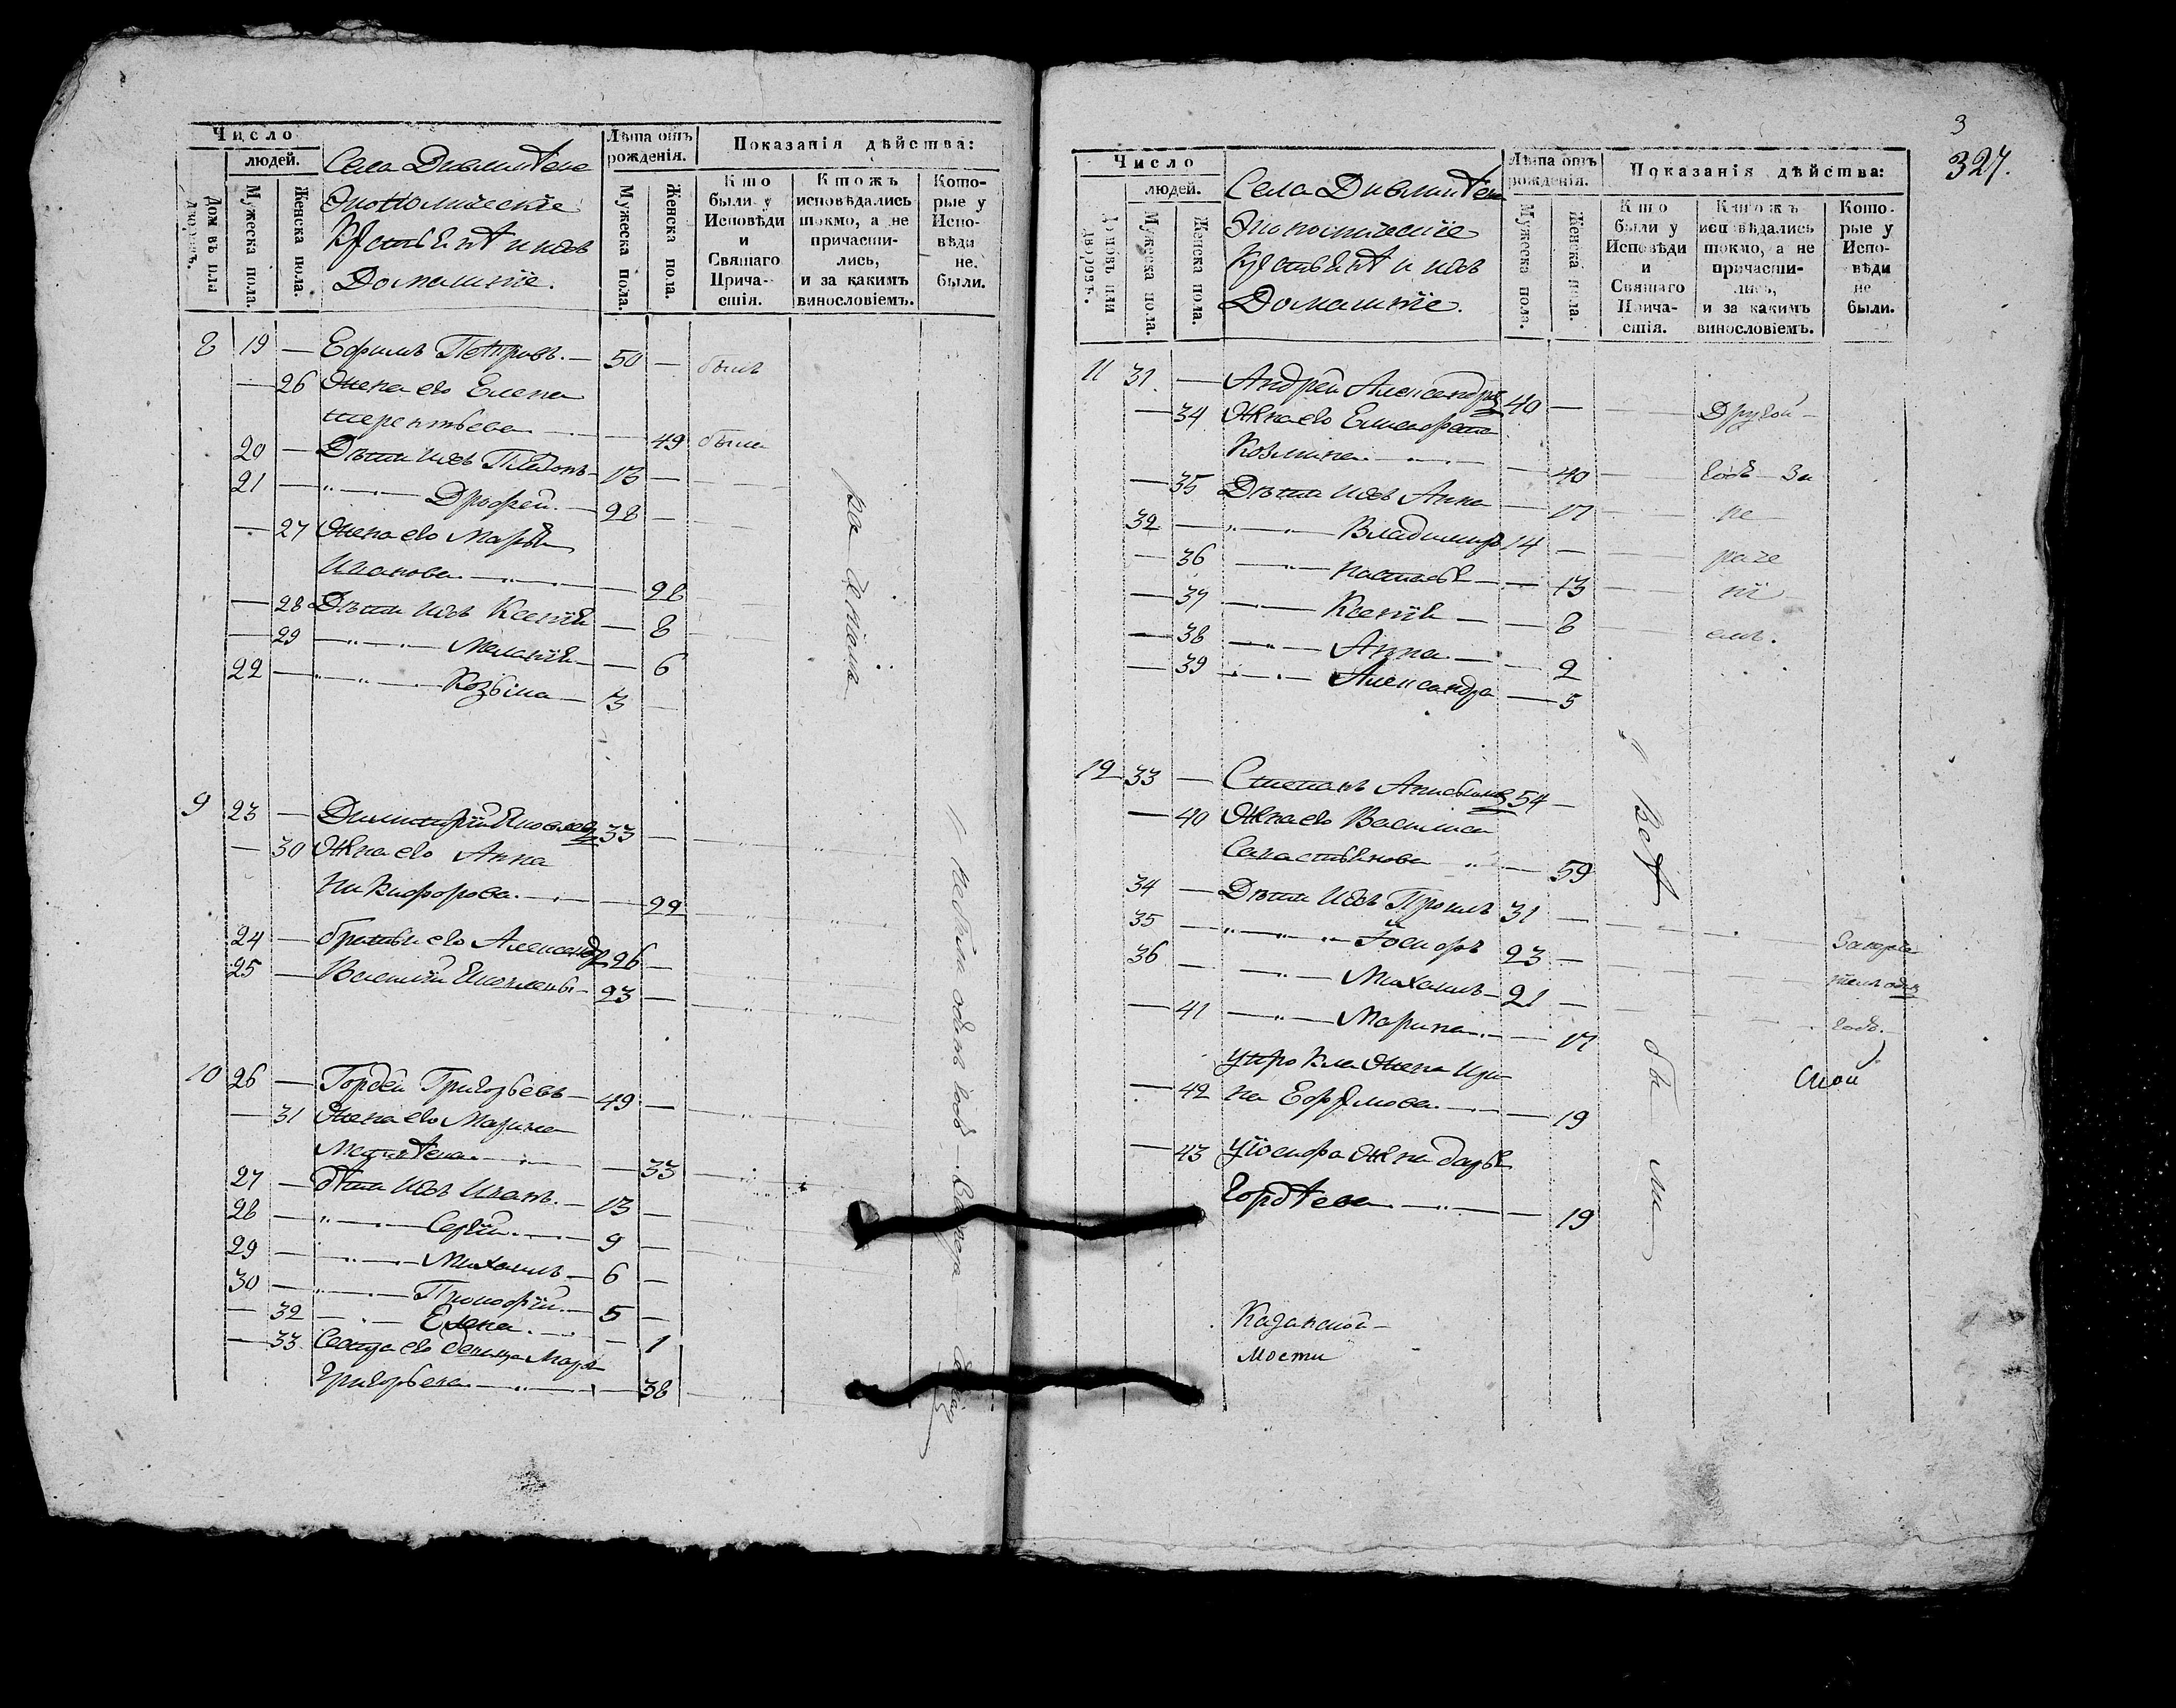 Число
людей.
Домовъ или дворовъ.
Мужеска пола.
Женска пола.
Села
Экономическіе
Крестьянѣ и ихъ
Домашніе.
Лѣта отъ рожденія.
Мужеска пола.
Женска пола.
Показанія дѣйства:
Кто были у Исповѣди и Святаго Причастія.
Ктожъ исповѣдались токмо, а не причастились, и за какимъ винословіемъ.
Которые у Исповѣди не были.
8 19 — Ефимъ Петровъ. — 50 — былъ
— 26 Жена его Елена
терентьева — — 49 была
20 — Дѣти ихъ — 13 —
21 — „ — Дрофей. — 28 —
— 27 Жена его Марья
Иванова — „ — — 28
— 28 Дѣти ихъ Ксенія — 8
— 29 — „ — Меланія — — 6
22 — „ „ — Козьма — 3 —
9 23 — Димитрій Яковлевъ 33 —
— 30 Жена его Анна
Никифорова. — — 22
24 — братья его Александръ 26 —
25 — Василій Яковлевы — 23 —
10 26 — Гордей Григорьевъ — 49 —
— 31 Жена его Марина
Матвѣева. — — 33
27 — дѣти ихъ Иванъ. — 13 —
28 — „ — Сергій. — 9 —
29 — „ — Михаилъ — 6 —
30 — „ — Прокофій — 5 —
— 32 — „ — Елена. — — 1
— 33 его девица Марья
Григорьева — „ — — 38
не были одинъ годъ
3
327.
Число
людей.
Домовъ или дворовъ.
Мужеска пола.
Женска пола.
Села
Экономическіе
Крестьянѣ и ихъ
Домашніе.
Лѣта отъ рожденія.
Мужеска пола.
Женска пола.
Показанія дѣйства:
Кто были у Исповѣди и Святаго Причастія.
Ктожъ исповѣдались токмо, а не причастились, и за какимъ винословіемъ.
Которые у Исповѣди не были.
11 31. — Андрей Александровъ 40 — Другой —
— 34 Жена его
Козмина — „ — — 40 годъ — За
— 35 Дѣти ихъ Анна — 17 не
32 — „ „ — Владимиръ 14 — раче
— 36 — „ — Настасья — — 13 ні
— 37 — „ — Ксенія — — 8 емъ.
— 38 — „ — Анна — — 2
— 39 „ — Александра — 5
12 33 — Степанъ 54 —
— 40 Жена его Василиса
Савастьянова „ — 59
34 — Дѣти ихъ 31 —
35 — „ „ — Іосифъ 23 —
36 — „ — Михаилъ — 21 —
— 41 — „ — Марина. — — 17 годъ.
жена Ири-
— 42 на Ефремова. — — 19
— 43 у Іосифа жена дарья
Гордѣева — „ — — 19
Всѣ бы ли
Казанской —
мости